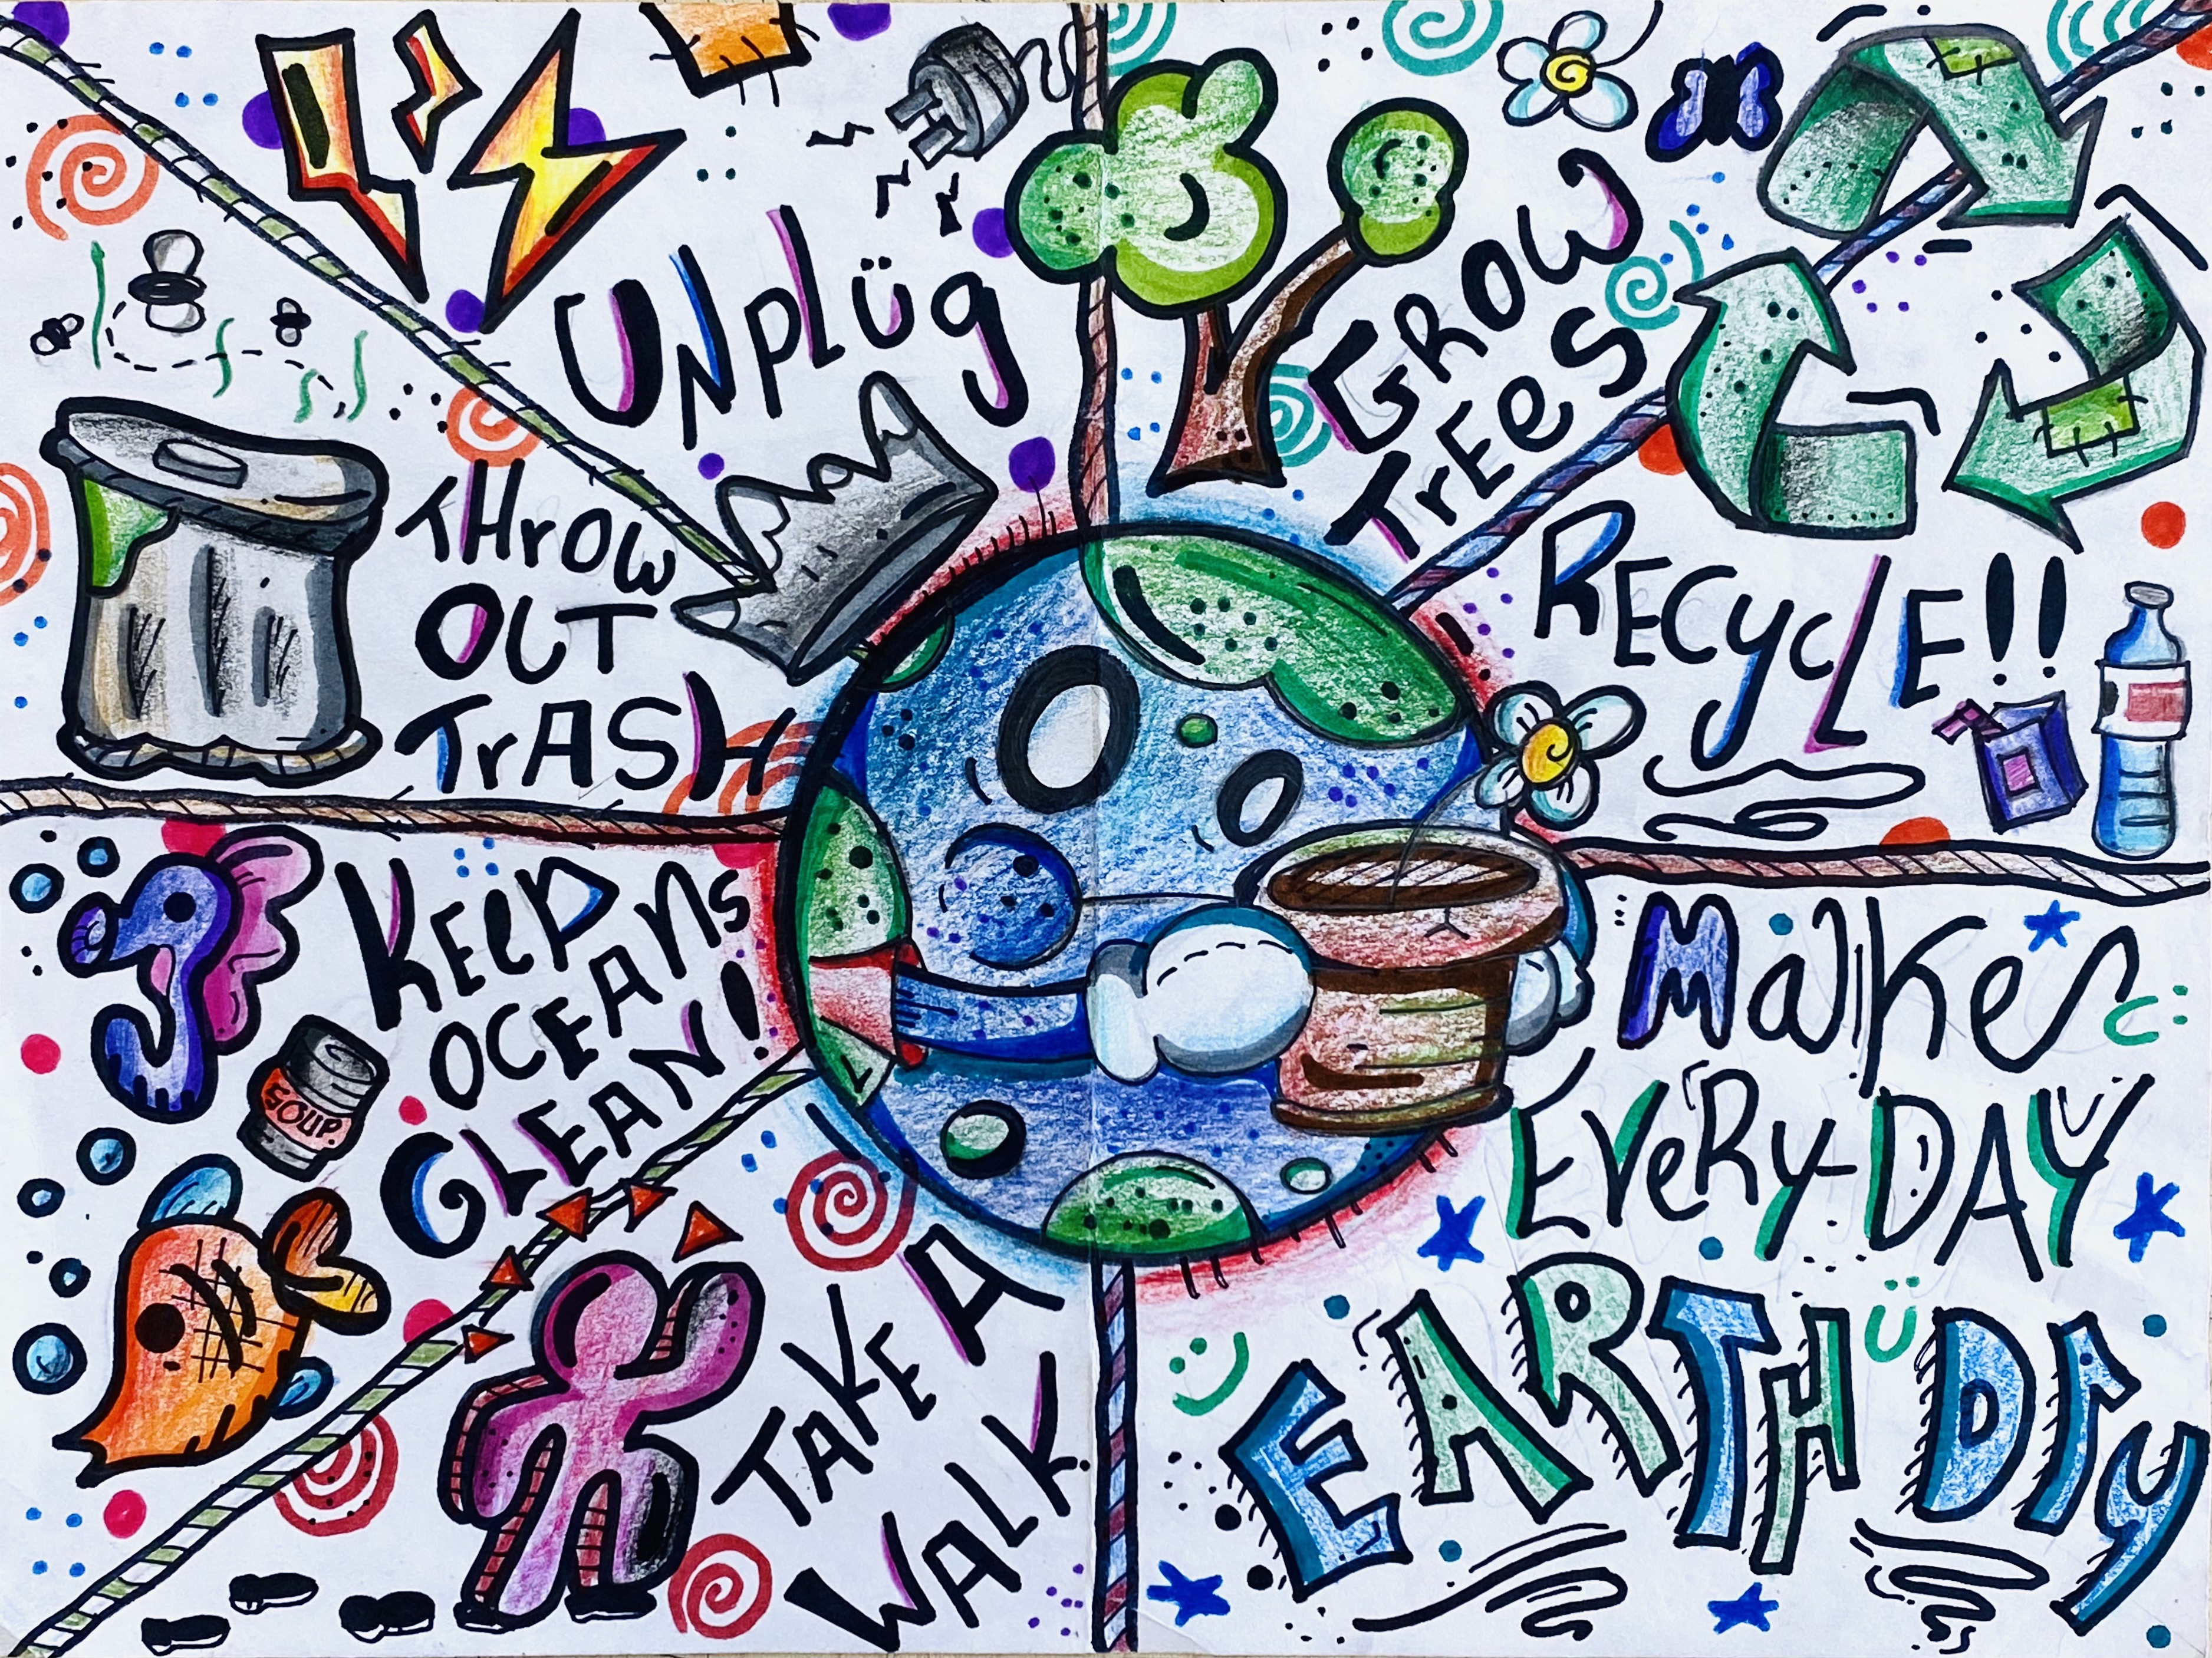 UNPLüg
GROW
TrEeS
RECycLE!!
THrOW
OUT
TrASH
KEEP
OCEANs
CLEAN!
SOUP.
TAKE A
WALK
Make
EVeRy-DAY
EARTH DAy